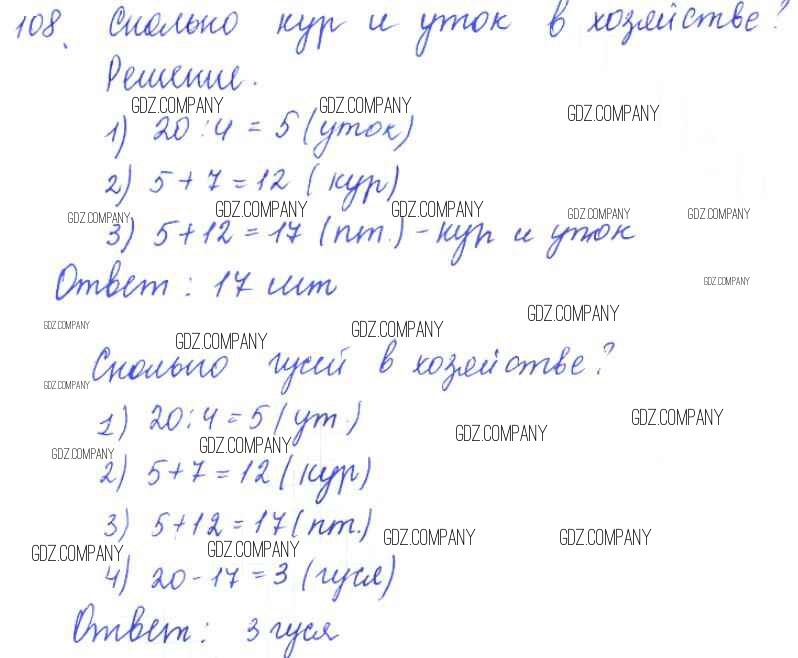 108. Сколько кур и уток в хозяйстве?
Решение.
GDZ.COMPANY GDZ.COMPANY GDZ.COMPANY
1) 20 : 4 = 5 (уток)
2) 5 + 7 = 12 (кур)
GDZ.COMPANY GDZ.COMPANY GDZ.COMPANY GDZ.COMPANY GDZ.COMPANY
3) 5 + 12 = 17 (пт.) - кур и уток
Ответ : 17 шт
GDZ.COMPANY
GDZ.COMPANY GDZ.COMPANY GDZ.COMPANY GDZ.COMPANY
Сколько гусей в хозяйстве?
GDZ.COMPANY
1) 20 : 4 = 5 (ут.)
GDZ.COMPANY GDZ.COMPANY GDZ.COMPANY GDZ.COMPANY
2) 5 + 7 = 12 (кур)
3) 5 + 12 = 17 (пт.)
GDZ.COMPANY GDZ.COMPANY GDZ.COMPANY GDZ.COMPANY
4) 20 - 17 = 3 (гуся)
Ответ : 3 гуся